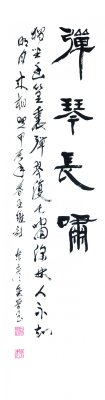 彈琴長嘯
獨坐幽篁裏彈琴復長嘯深林人不知
明月來相照